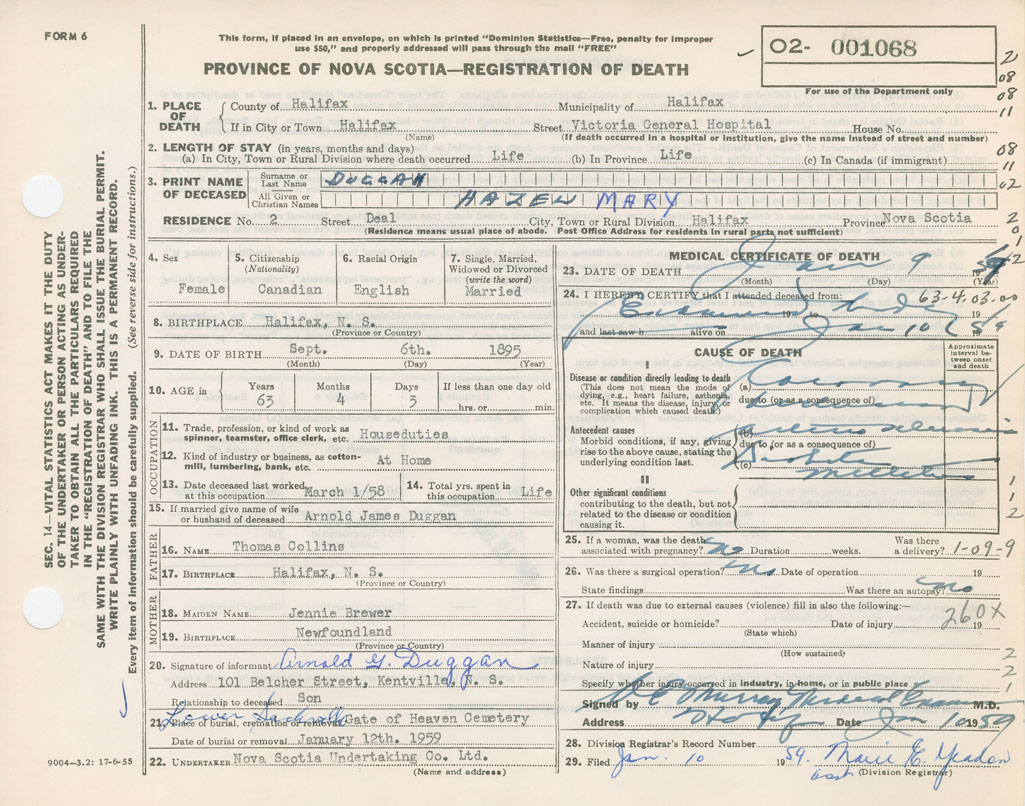 FORM 6
This form, if placed in an envelope, on which is printed "Dominion Statistics—Free, penalty for improper
use $50," and properly addressed will pass through the mail "FREE"
PROVINCE OF NOVA SCOTIA—REGISTRATION OF DEATH
02- 001068
For use of the Department only
2
08
08
11
08
11
02
2
0
1
2
SEC. 14—VITAL STATISTICS ACT MAKES IT THE DUTY
OF THE UNDERTAKER OR PERSON ACTING AS UNDER-
TAKER TO OBTAIN ALL THE PARTICULARS REQUIRED
IN THE "REGISTRATION OF DEATH" AND TO FILE THE
SAME WITH THE DIVISION REGISTRAR WHO SHALL ISSUE THE BURIAL PERMIT.
WRITE PLAINLY WITH UNFADING INK. THIS IS A PERMANENT RECORD.
Every item of information should be carefully supplied. (See reverse side for instructions.)
1. PLACE OF DEATH
County of Halifax Municipality of Halifax
If in City or Town Halifax Street Victoria General Hospital House No.
(Name) (If death occurred in a hospital or institution, give the name instead of street and number)
2. LENGTH OF STAY (in years, months and days)
(a) In City, Town or Rural Division where death occurred Life (b) In Province Life (c) In Canada (if immigrant)
3. PRINT NAME OF DECEASED
Surname or Last Name DUGGAN
All Given or Christian Names HAZEL MARY
RESIDENCE No. 2 Street Deal City, Town or Rural Division Halifax Province Nova Scotia
(Residence means usual place of abode. Post Office Address for residents in rural parts not sufficient)
4. Sex
Female
5. Citizenship
(Nationality)
Canadian
6. Racial Origin
English
7. Single, Married,
Widowed or Divorced
(write the word)
Married
8. BIRTHPLACE Halifax, N. S.
(Province or Country)
9. DATE OF BIRTH Sept. 6th. 1895
(Month) (Day) (Year)
10. AGE in
Years Months Days If less than one day old
63 4 3 hrs. or min.
OCCUPATION
11. Trade, profession, or kind of work as
spinner, teamster, office clerk, etc. Houseduties
12. Kind of industry or business, as cotton-
mill, lumbering, bank, etc. At Home
13. Date deceased last worked
at this occupation March 1/58
14. Total yrs. spent in
this occupation Life
15. If married give name of wife
or husband of deceased Arnold James Duggan
FATHER
16. NAME Thomas Collins
17. BIRTHPLACE Halifax, N. S.
(Province or Country)
MOTHER
18. MAIDEN NAME Jennie Brewer
19. BIRTHPLACE Newfoundland
(Province or Country)
20. Signature of informant Arnold G. Duggan
Address 101 Belcher Street, Kentville, N. S.
Relationship to deceased Son
21. Place of burial, cremation or removal Lower Sackville Gate of Heaven Cemetery
Date of burial or removal January 12th. 1959
22. UNDERTAKER Nova Scotia Undertaking Co. Ltd.
(Name and address)
9004—3.2: 17-6-55
MEDICAL CERTIFICATE OF DEATH
23. DATE OF DEATH Jan 9 1959
(Month) (Day) (Year)
24. I HEREBY CERTIFY that I attended deceased from: 63-4.03-00
Examined body 19 to 19
and last saw h alive on Jan 10 1959
CAUSE OF DEATH
Approximate
interval be-
tween onset
and death
I
Disease or condition directly leading to death
(This does not mean the mode of
dying, e.g., heart failure, asthenia,
etc. It means the disease, injury, or
complication which caused death.)
(a) Coronary
due to (or as a consequence of)
Antecedent causes
Morbid conditions, if any, giving
rise to the above cause, stating the
underlying condition last.
(b) Arterio sclerosis
due to (or as a consequence of)
(c) Diabetes Mellitus
II
Other significant conditions
contributing to the death, but not
related to the disease or condition
causing it.
1
1
2
25. If a woman, was the death Was there
associated with pregnancy? no Duration weeks. a delivery? 1-09-9
26. Was there a surgical operation? no Date of operation 19
State findings Was there an autopsy? no
27. If death was due to external causes (violence) fill in also the following:—
Accident, suicide or homicide? Date of injury 19
260X
(State which)
Manner of injury 2
(How sustained)
Nature of injury 2
Specify whether injury occurred in industry, in home, or in public place 1
Signed by Murray Medical Examiner M.D.
Address Date Jan 10 1959
28. Division Registrar's Record Number
29. Filed Jan. 10 1959. Marie E. Meaden
asst (Division Registrar)